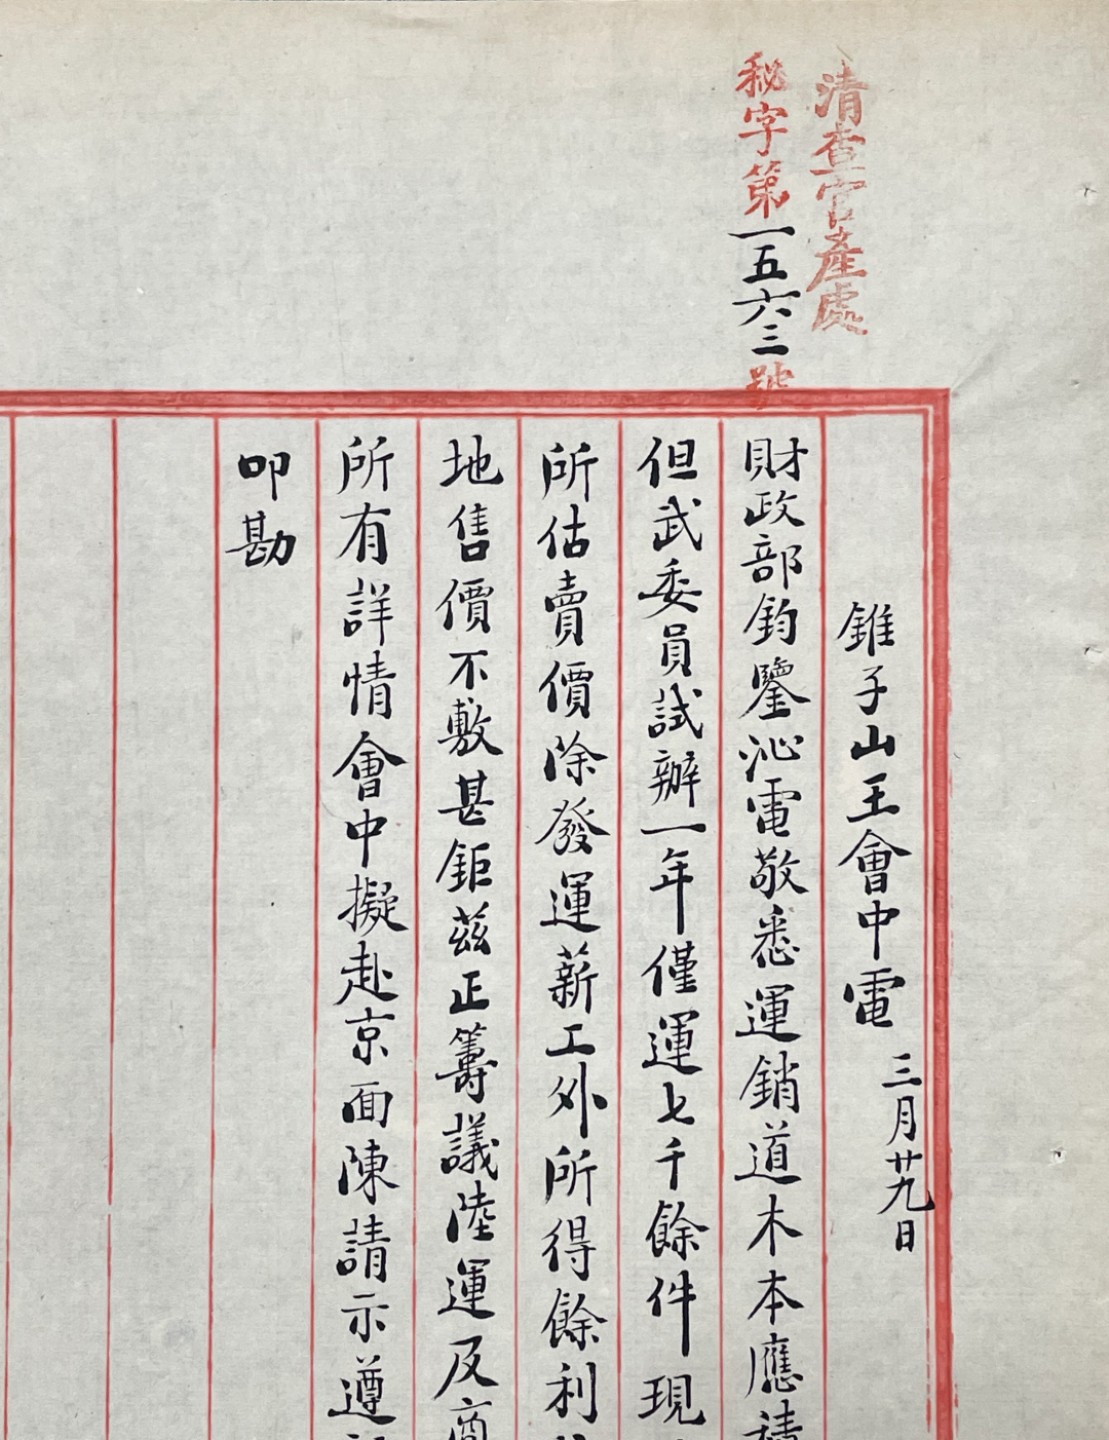 清查官產處
秘字第一五六三號
錐子山王會中電 三月廿九日
財政部鈞鑒沁電敬悉運銷道木本應積
但武委員試辦一年僅運七千餘件現
所估賣價除發運薪工外所得餘利
地售價不敷甚鉅茲正籌議陸運及商
所有詳情會中擬赴京面陳請示遵
叩勘